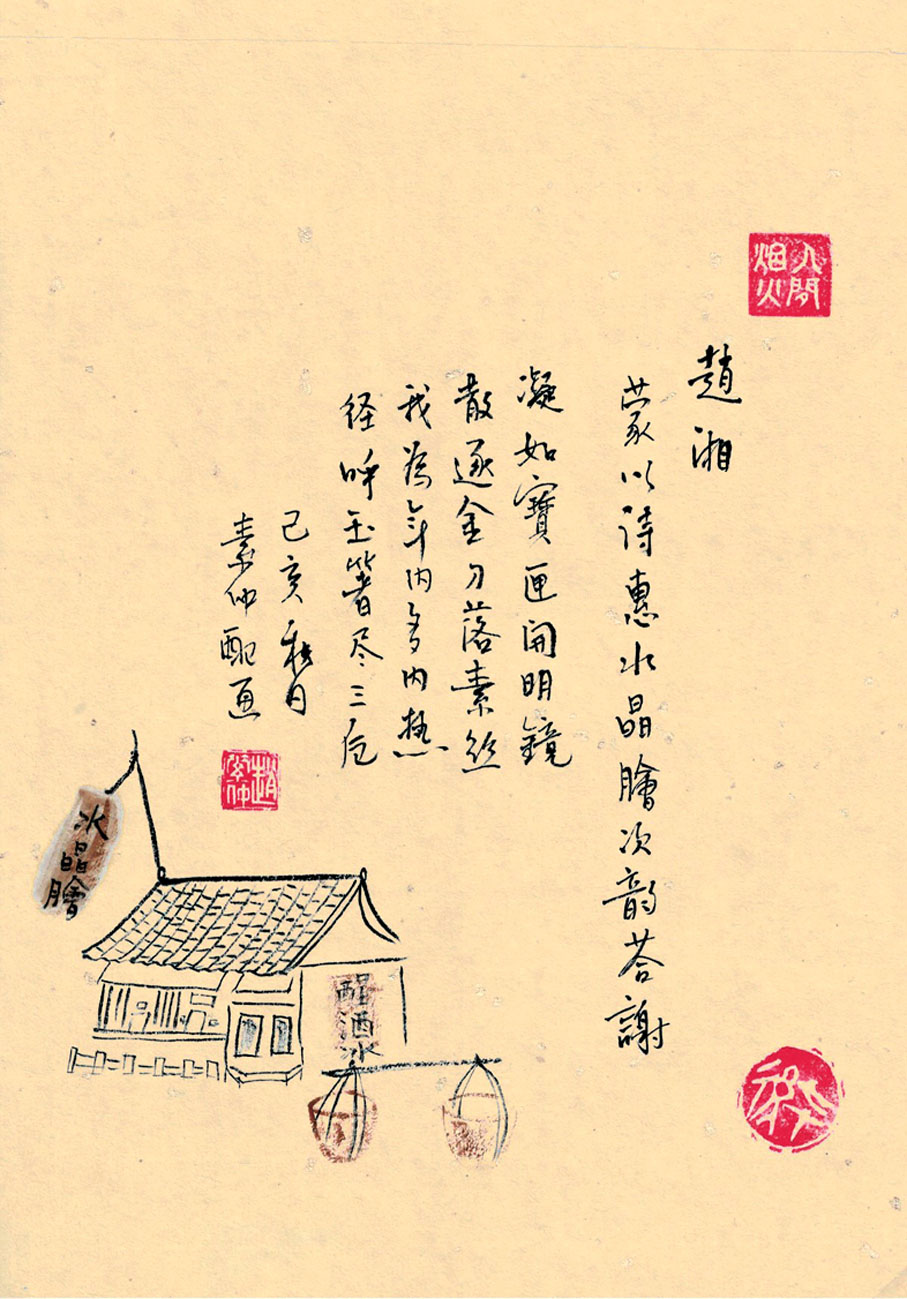 人間
烟火
趙湘
蒙以詩惠水晶膾次韵荅謝
凝如寶匣開明鏡
散逐金刀落素絲
我為年内多内热
径呼玉箸尽三卮
己亥秋日
素仲配画
趙素仲
水晶膾
醒酒冰